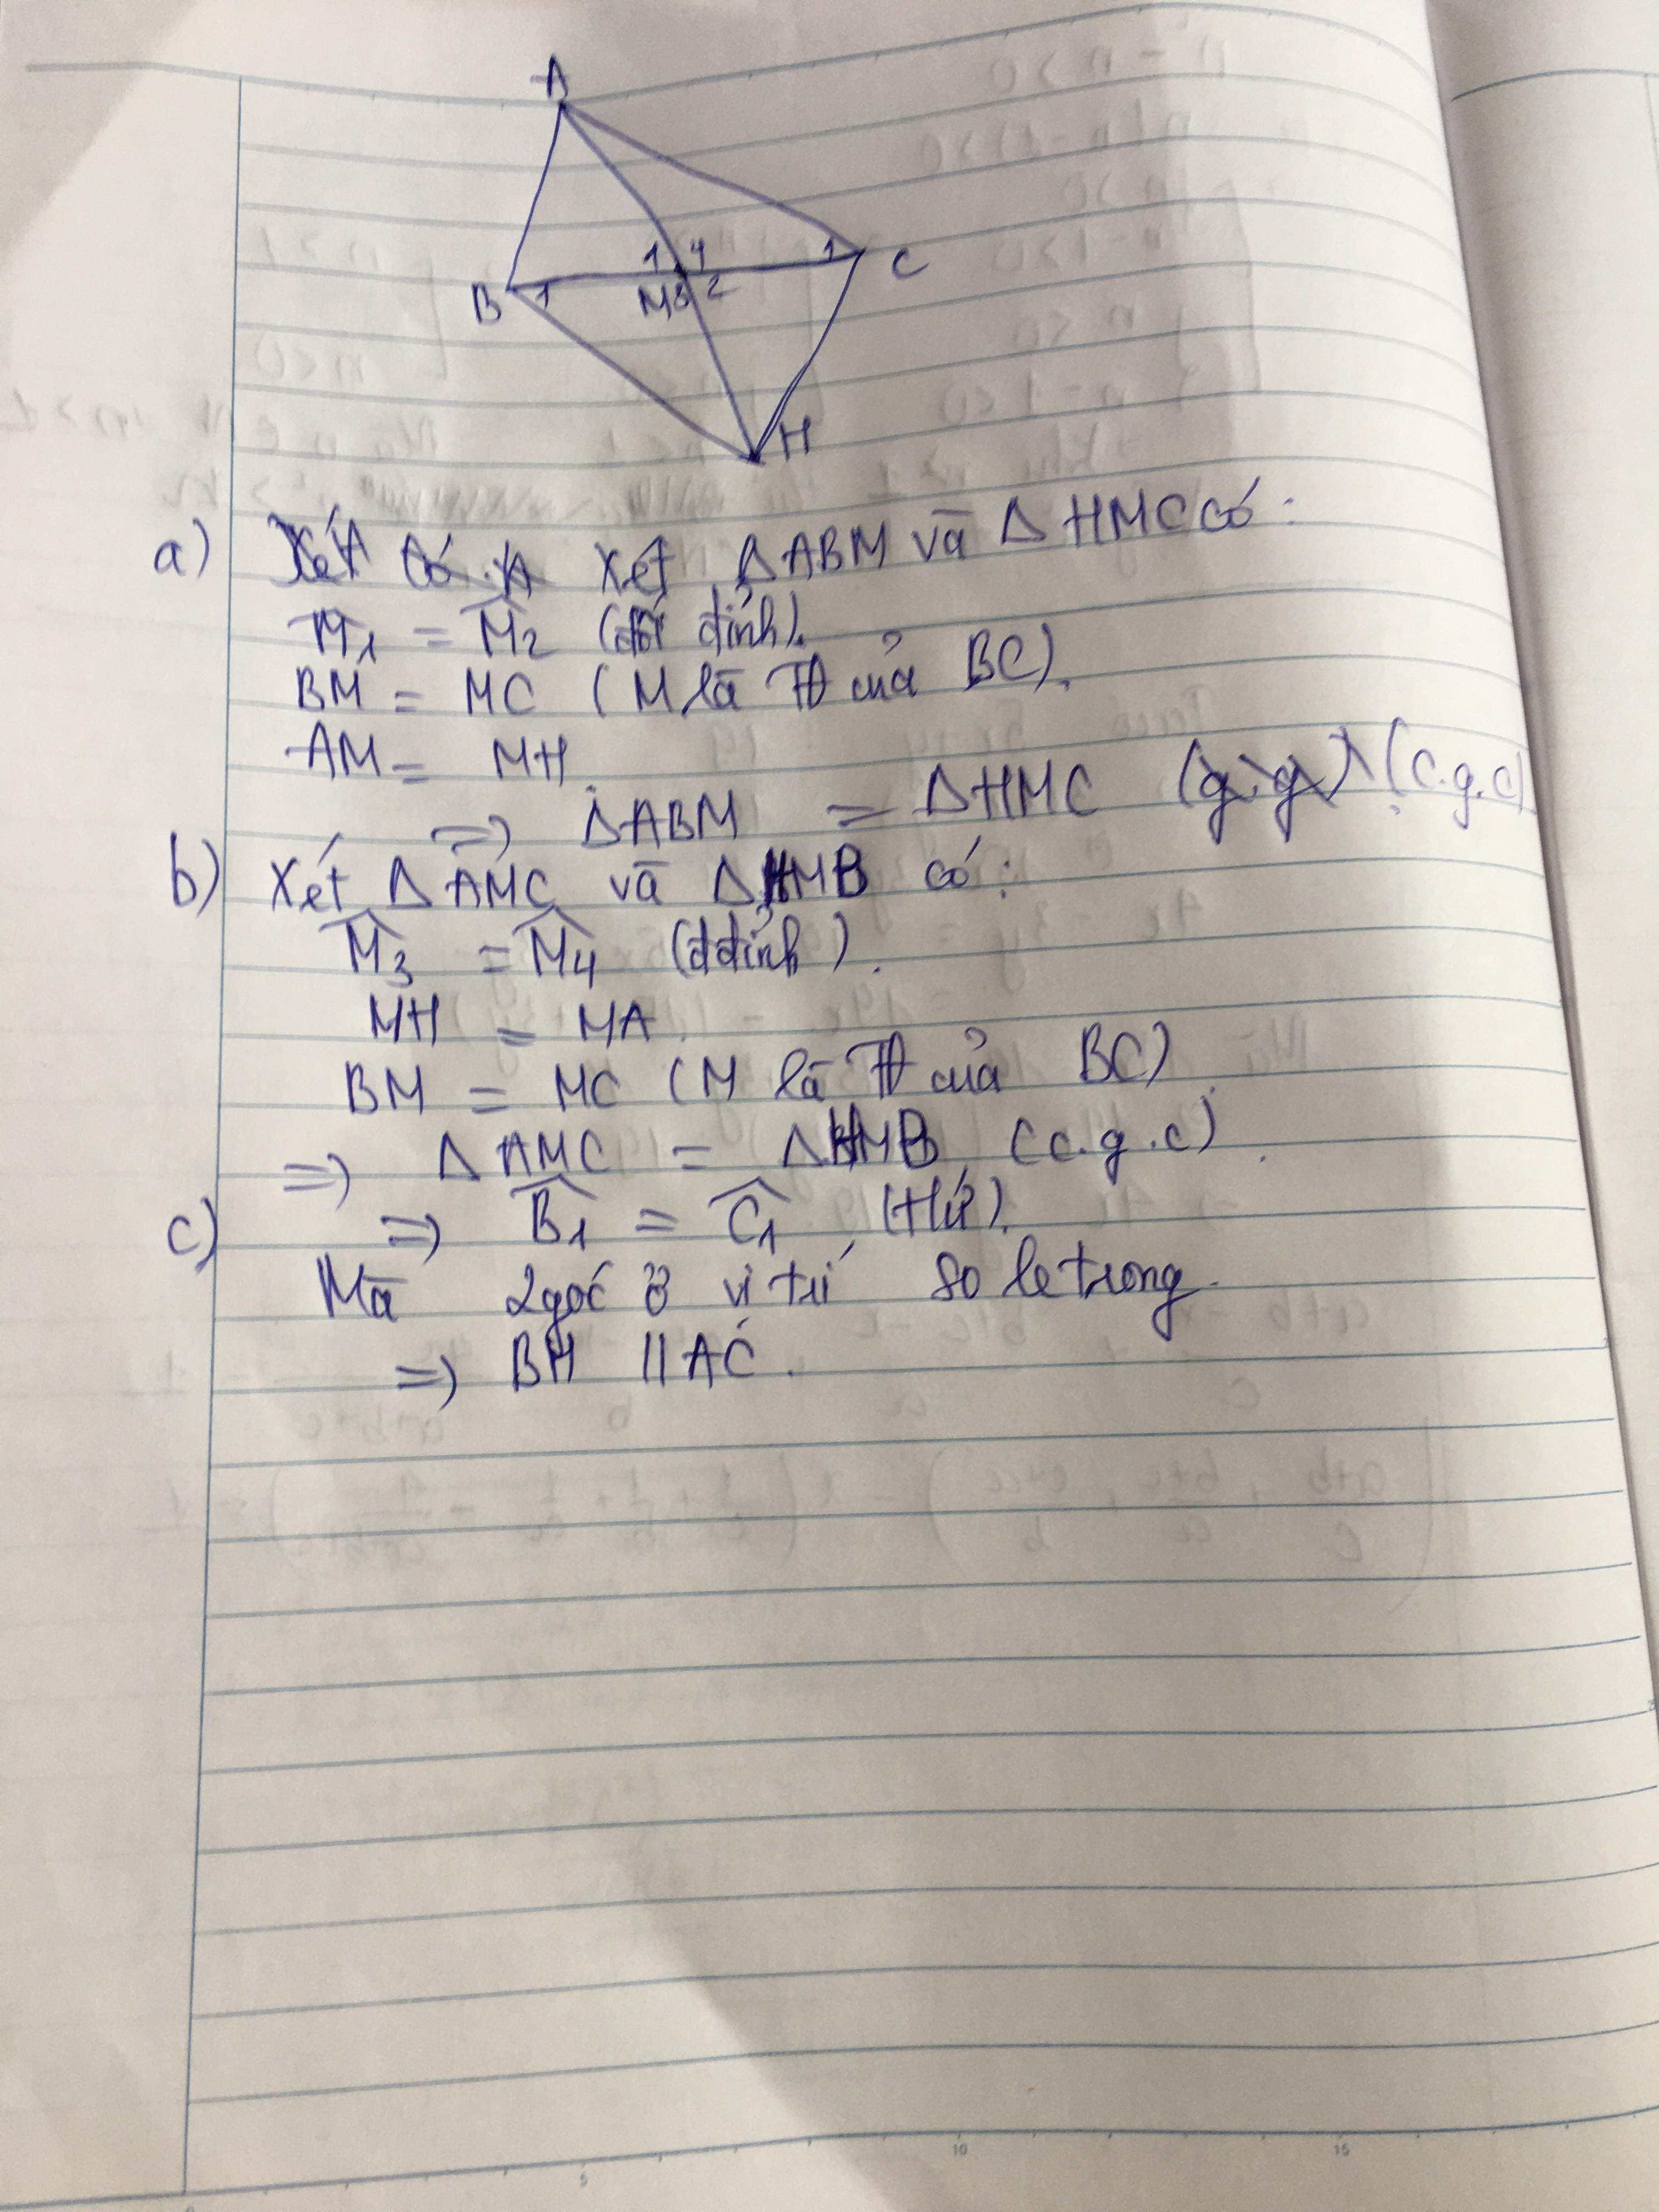 A
1 4 1 C
B 1 M 3 2
H
a) Xét ΔABM và Δ HMC có:
M̂1 = M̂2 (đối đỉnh).
BM = MC (M là TĐ của BC).
AM = MH.
=> ΔABM = ΔHMC (g.g) (c.g.c)
b) Xét Δ AMC và ΔHMB có:
M̂3 = M̂4 (đđỉnh).
MH = MA.
BM = MC (M là TĐ của BC).
=> Δ AMC = ΔHMB (c.g.c).
c) => B̂1 = Ĉ1 (tứ).
Mà 2 góc ở vị trí so le trong.
=> BH // AC.
5 10 15